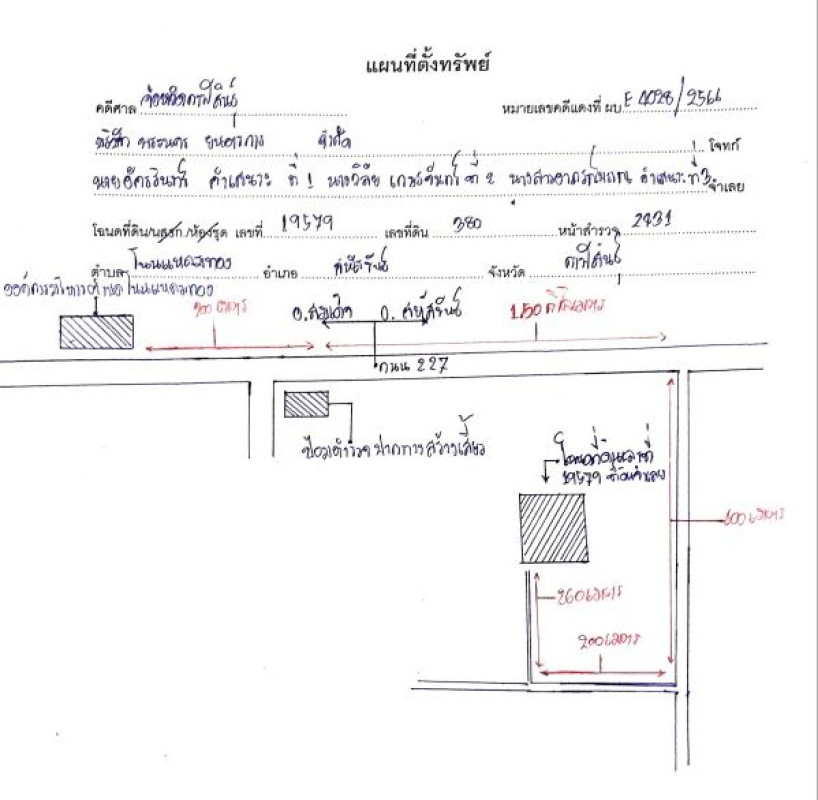 แผนที่ตั้งทรัพย์
คดีศาล จังหวัดกาฬสินธุ์ หมายเลขคดีแดงที่ ผบ.E 4028/2566
บริษัท พระนคร ยนตรการ จำกัด โจทก์
นาย ที่ 1 นางวิลัย เกษรจันทร์ ที่ 2 นางสาว ที่ 3 จำเลย
โฉนดที่ดิน/น.ส.3ก./ห้องชุด เลขที่ 19579 เลขที่ดิน 380 หน้าสำรวจ 2431
ตำบล โนนแหลมทอง อำเภอ สหัสขันธ์ จังหวัด กาฬสินธุ์
องค์การบริหารตำบลโนนแหลมทอง
อ.สมเด็จ อ.สหัสขันธ์
1.50 กิโลเมตร
ถนน 227
ป้อมตำรวจปากทางสร้างเสี้ยว
โฉนดที่ดินเลขที่
19579
600 เมตร
260 เมตร
200 เมตร